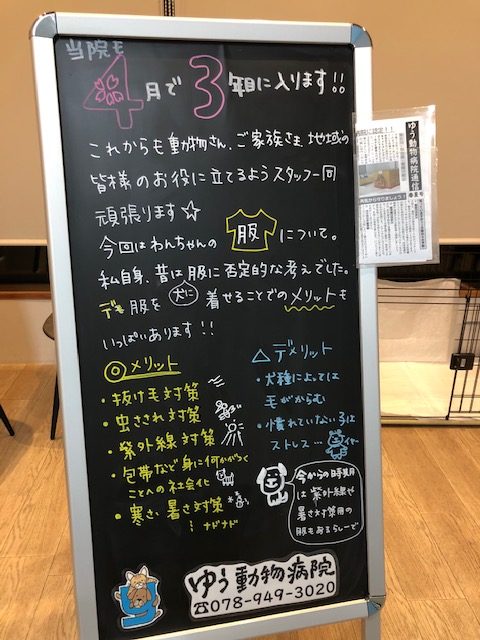 当院も
4月で3年目に入ります!!
これからも動物さん、ご家族さま、地域の
皆様のお役に立てるようスタッフ一同
頑張ります☆
今回はわんちゃんの服について。
私自身、昔は服に否定的な考えでした。
でも服を犬に着せることでのメリットも
いっぱいあります!!
◎メリット
・抜け毛対策
・虫さされ対策
・紫外線対策
・包帯など身に何かがつく
ことへの社会化
・寒さ、暑さ対策
…ナドナド
△デメリット
・犬種によっては
毛がからむ
・慣れていない子は
ストレス…
イヤー
今からの時季用
は紫外線や
暑さ対策用の
服もあるらしーで
ゆう動物病院
☎078-949-3020
ゆう動物病院通信